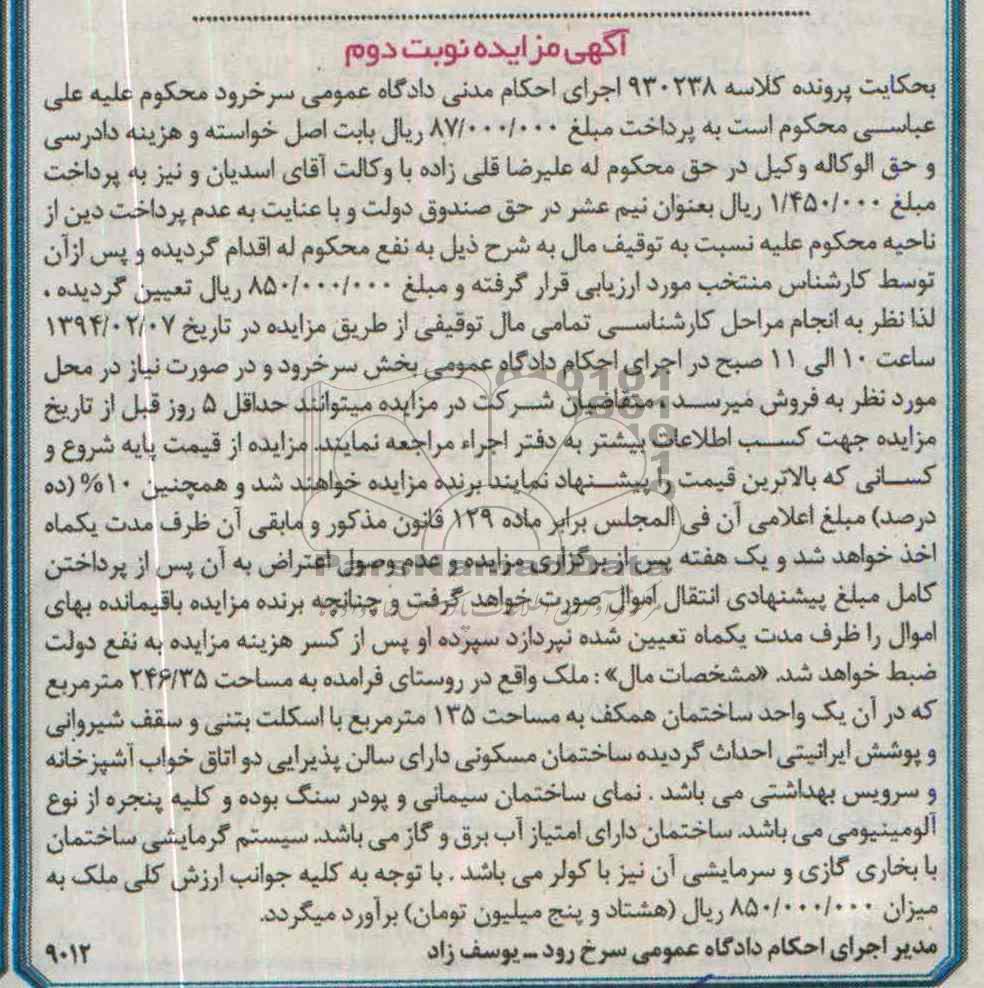 آگهی مزایده نوبت دوم
بحکایت پرونده کلاسه ۹۳۰۲۳۸ اجرای احکام مدنی دادگاه عمومی سرخرود محکوم علیه علی
عباسی محکوم است به پرداخت مبلغ ۸۷/۰۰۰/۰۰۰ ریال بابت اصل خواسته و هزینه دادرسی
و حق الوکاله وکیل در حق محکوم له علیرضا قلی زاده با وکالت آقای اسدیان و نیز به پرداخت
مبلغ ۱/۴۵۰/۰۰۰ ریال بعنوان نیم عشر در حق صندوق دولت و با عنایت به عدم پرداخت دین از
ناحیه محکوم علیه نسبت به توقیف مال به شرح ذیل به نفع محکوم له اقدام گردیده و پس ازآن
توسط کارشناس منتخب مورد ارزیابی قرار گرفته و مبلغ ۸۵۰/۰۰۰/۰۰۰ ریال تعیین گردیده .
لذا نظر به انجام مراحل کارشناسی تمامی مال توقیفی از طریق مزایده در تاریخ ۱۳۹۴/۰۲/۰۷
ساعت ۱۰ الی ۱۱ صبح در اجرای احکام دادگاه عمومی بخش سرخرود و در صورت نیاز در محل
مورد نظر به فروش میرسد . متقاضیان شرکت در مزایده میتوانند حداقل ۵ روز قبل از تاریخ
مزایده جهت کسب اطلاعات بیشتر به دفتر اجراء مراجعه نمایند. مزایده از قیمت پایه شروع و
کسانی که بالاترین قیمت را پیشنهاد نمایند برنده مزایده خواهند شد و همچنین ۱۰% (ده
درصد) مبلغ اعلامی آن فی المجلس برابر ماده ۱۲۹ قانون مذکور و مابقی آن ظرف مدت یکماه
اخذ خواهد شد و یک هفته پس از برگزاری مزایده و عدم وصول اعتراض به آن پس از پرداختن
کامل مبلغ پیشنهادی انتقال اموال صورت خواهد گرفت و چنانچه برنده مزایده باقیمانده بهای
اموال را ظرف مدت یکماه تعیین شده نپردازد سپرده او پس از کسر هزینه مزایده به نفع دولت
ضبط خواهد شد. «مشخصات مال» : ملک واقع در روستای فرامده به مساحت ۲۴۶/۳۵ مترمربع
که در آن یک واحد ساختمان همکف به مساحت ۱۳۵ مترمربع با اسکلت بتنی و سقف شیروانی
و پوشش ایرانیتی احداث گردیده ساختمان مسکونی دارای سالن پذیرایی دو اتاق خواب آشپزخانه
و سرویس بهداشتی می باشد . نمای ساختمان سیمانی و پودر سنگ بوده و کلیه پنجره از نوع
آلومینیومی می باشد. ساختمان دارای امتیاز آب برق و گاز می باشد. سیستم گرمایشی ساختمان
با بخاری گازی و سرمایشی آن نیز با کولر می باشد . با توجه به کلیه جوانب ارزش کلی ملک به
میزان ۸۵۰/۰۰۰/۰۰۰ ریال (هشتاد و پنج میلیون تومان) برآورد میگردد.
مدیر اجرای احکام دادگاه عمومی سرخ رود ـ یوسف زاد ۹۰۱۲
ParsNamadData